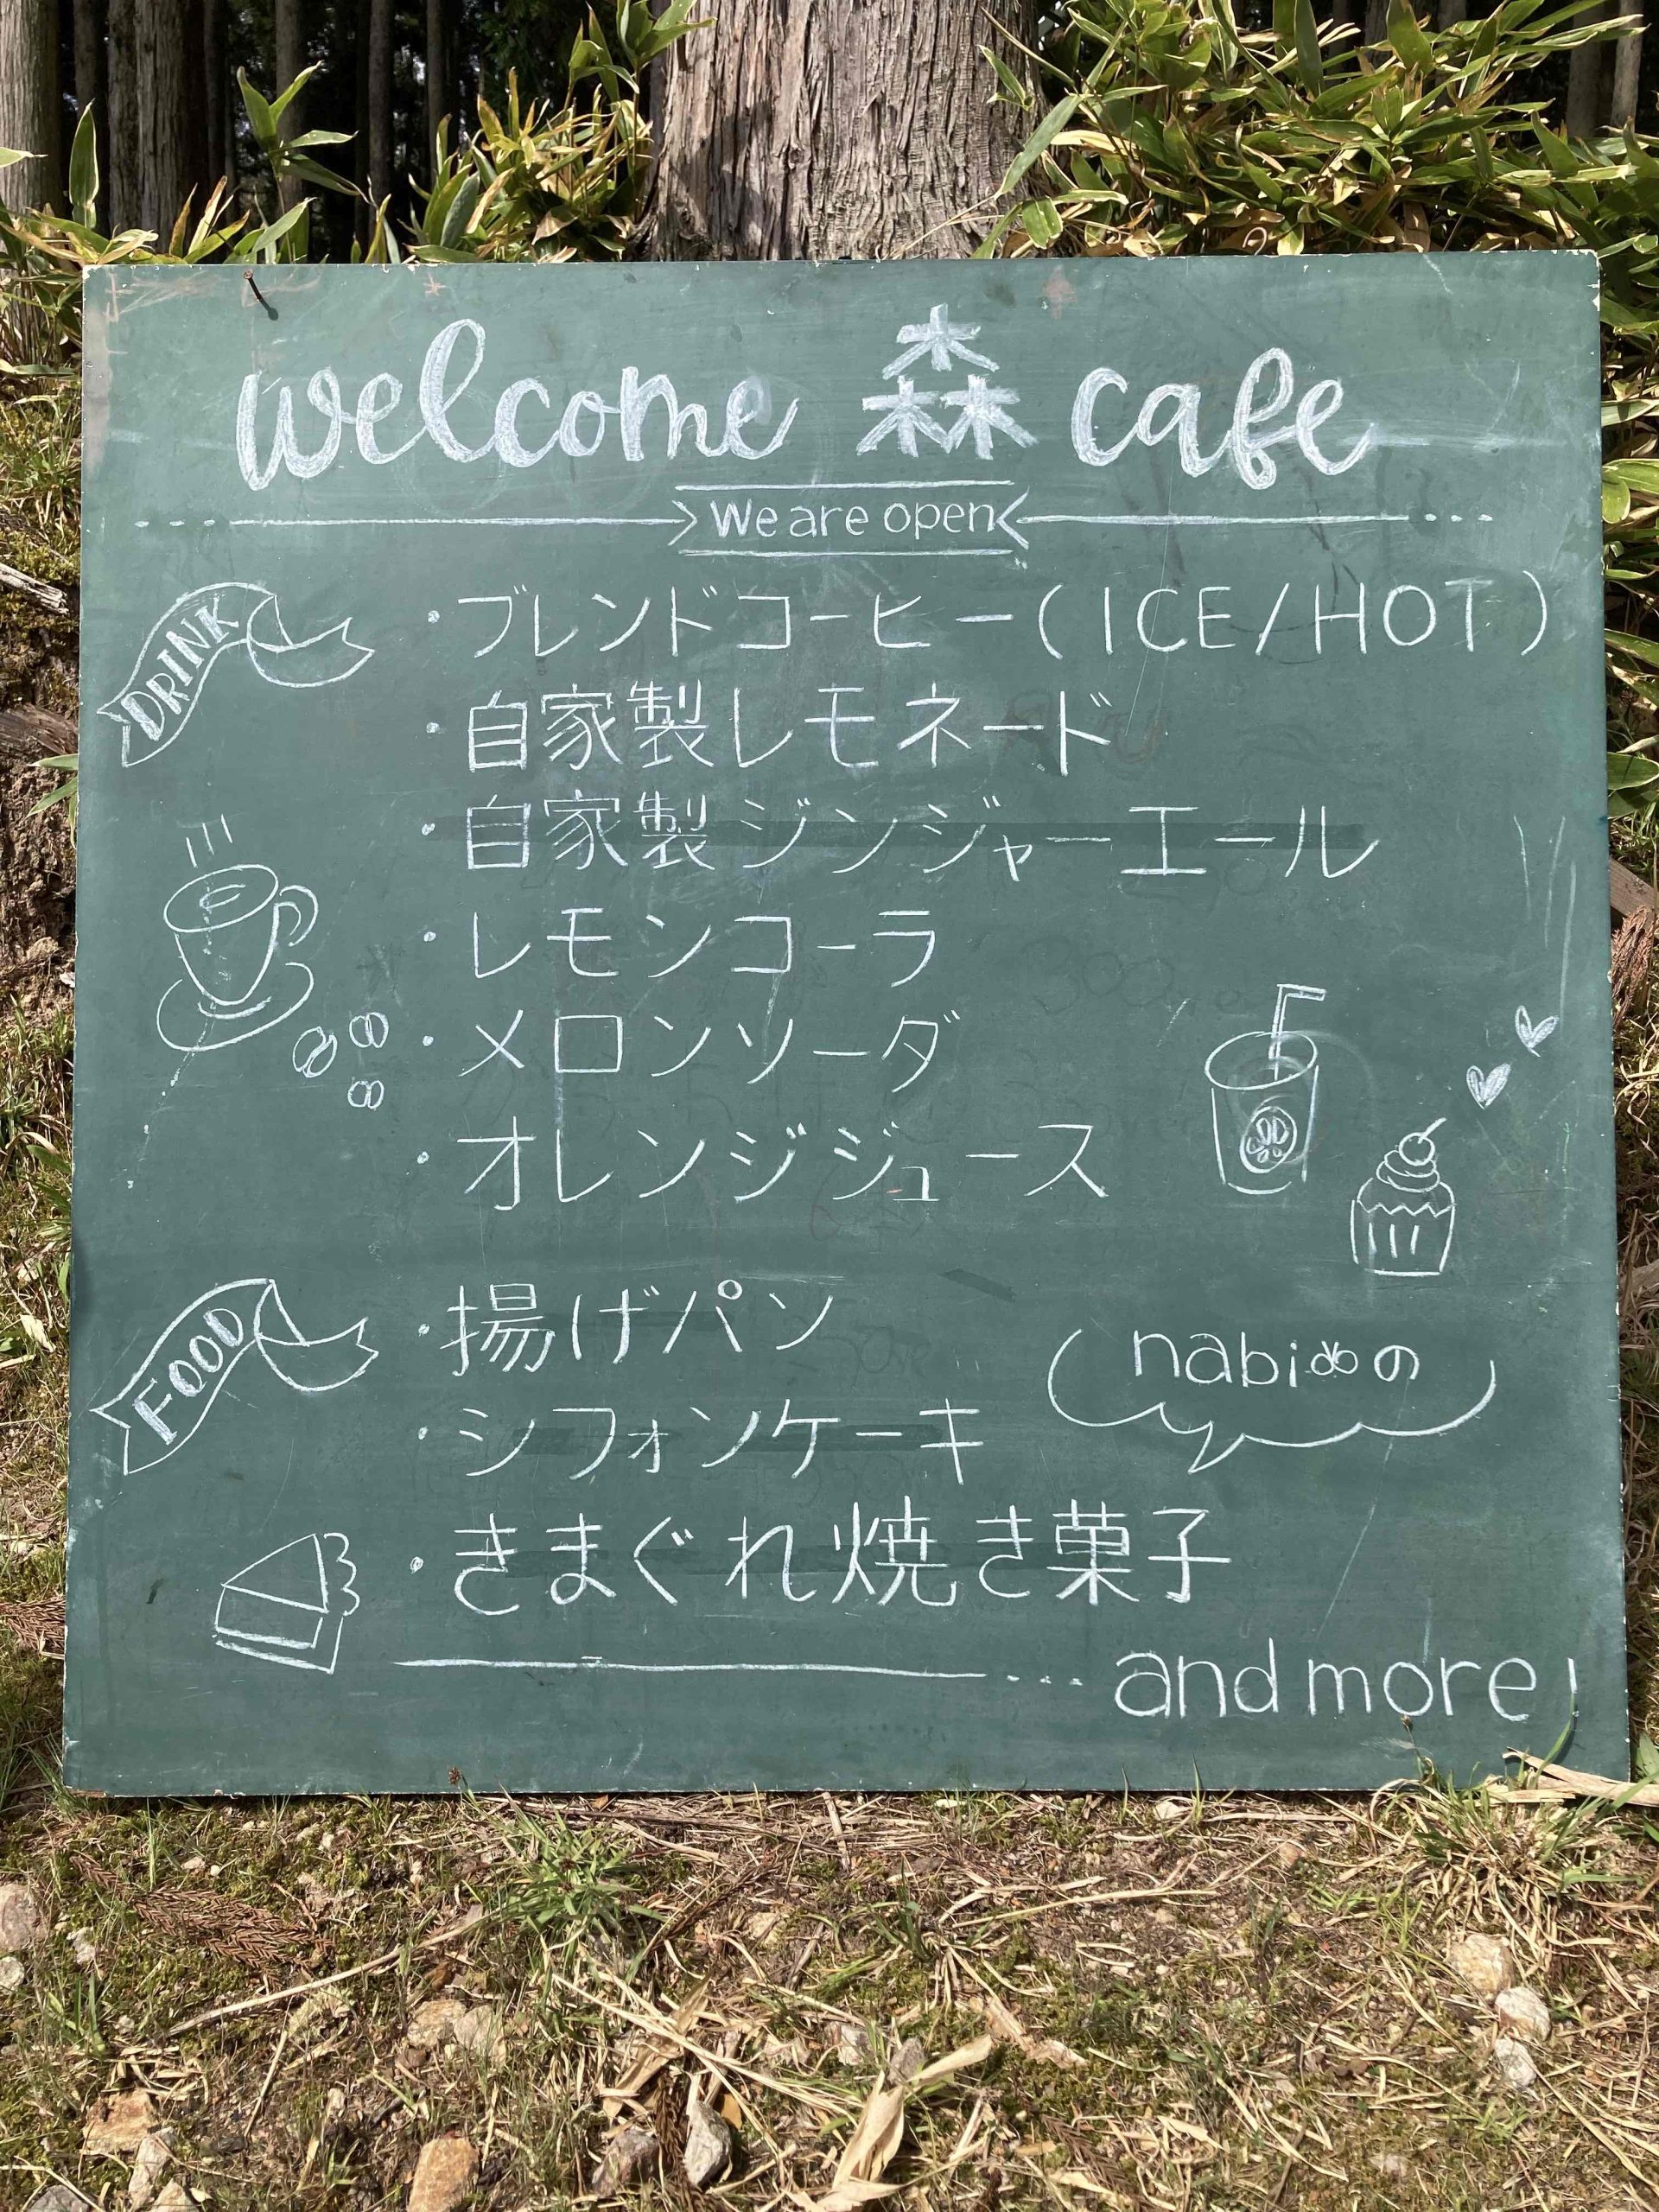 welcome 森 cafe
We are open
DRINK
・ブレンドコーヒー(ICE/HOT)
・自家製レモネード
・自家製ジンジャーエール
・レモンコーラ
・メロンソーダ
・オレンジジュース
FOOD
・揚げパン
nabiの
・シフォンケーキ
・きまぐれ焼き菓子
...and more!